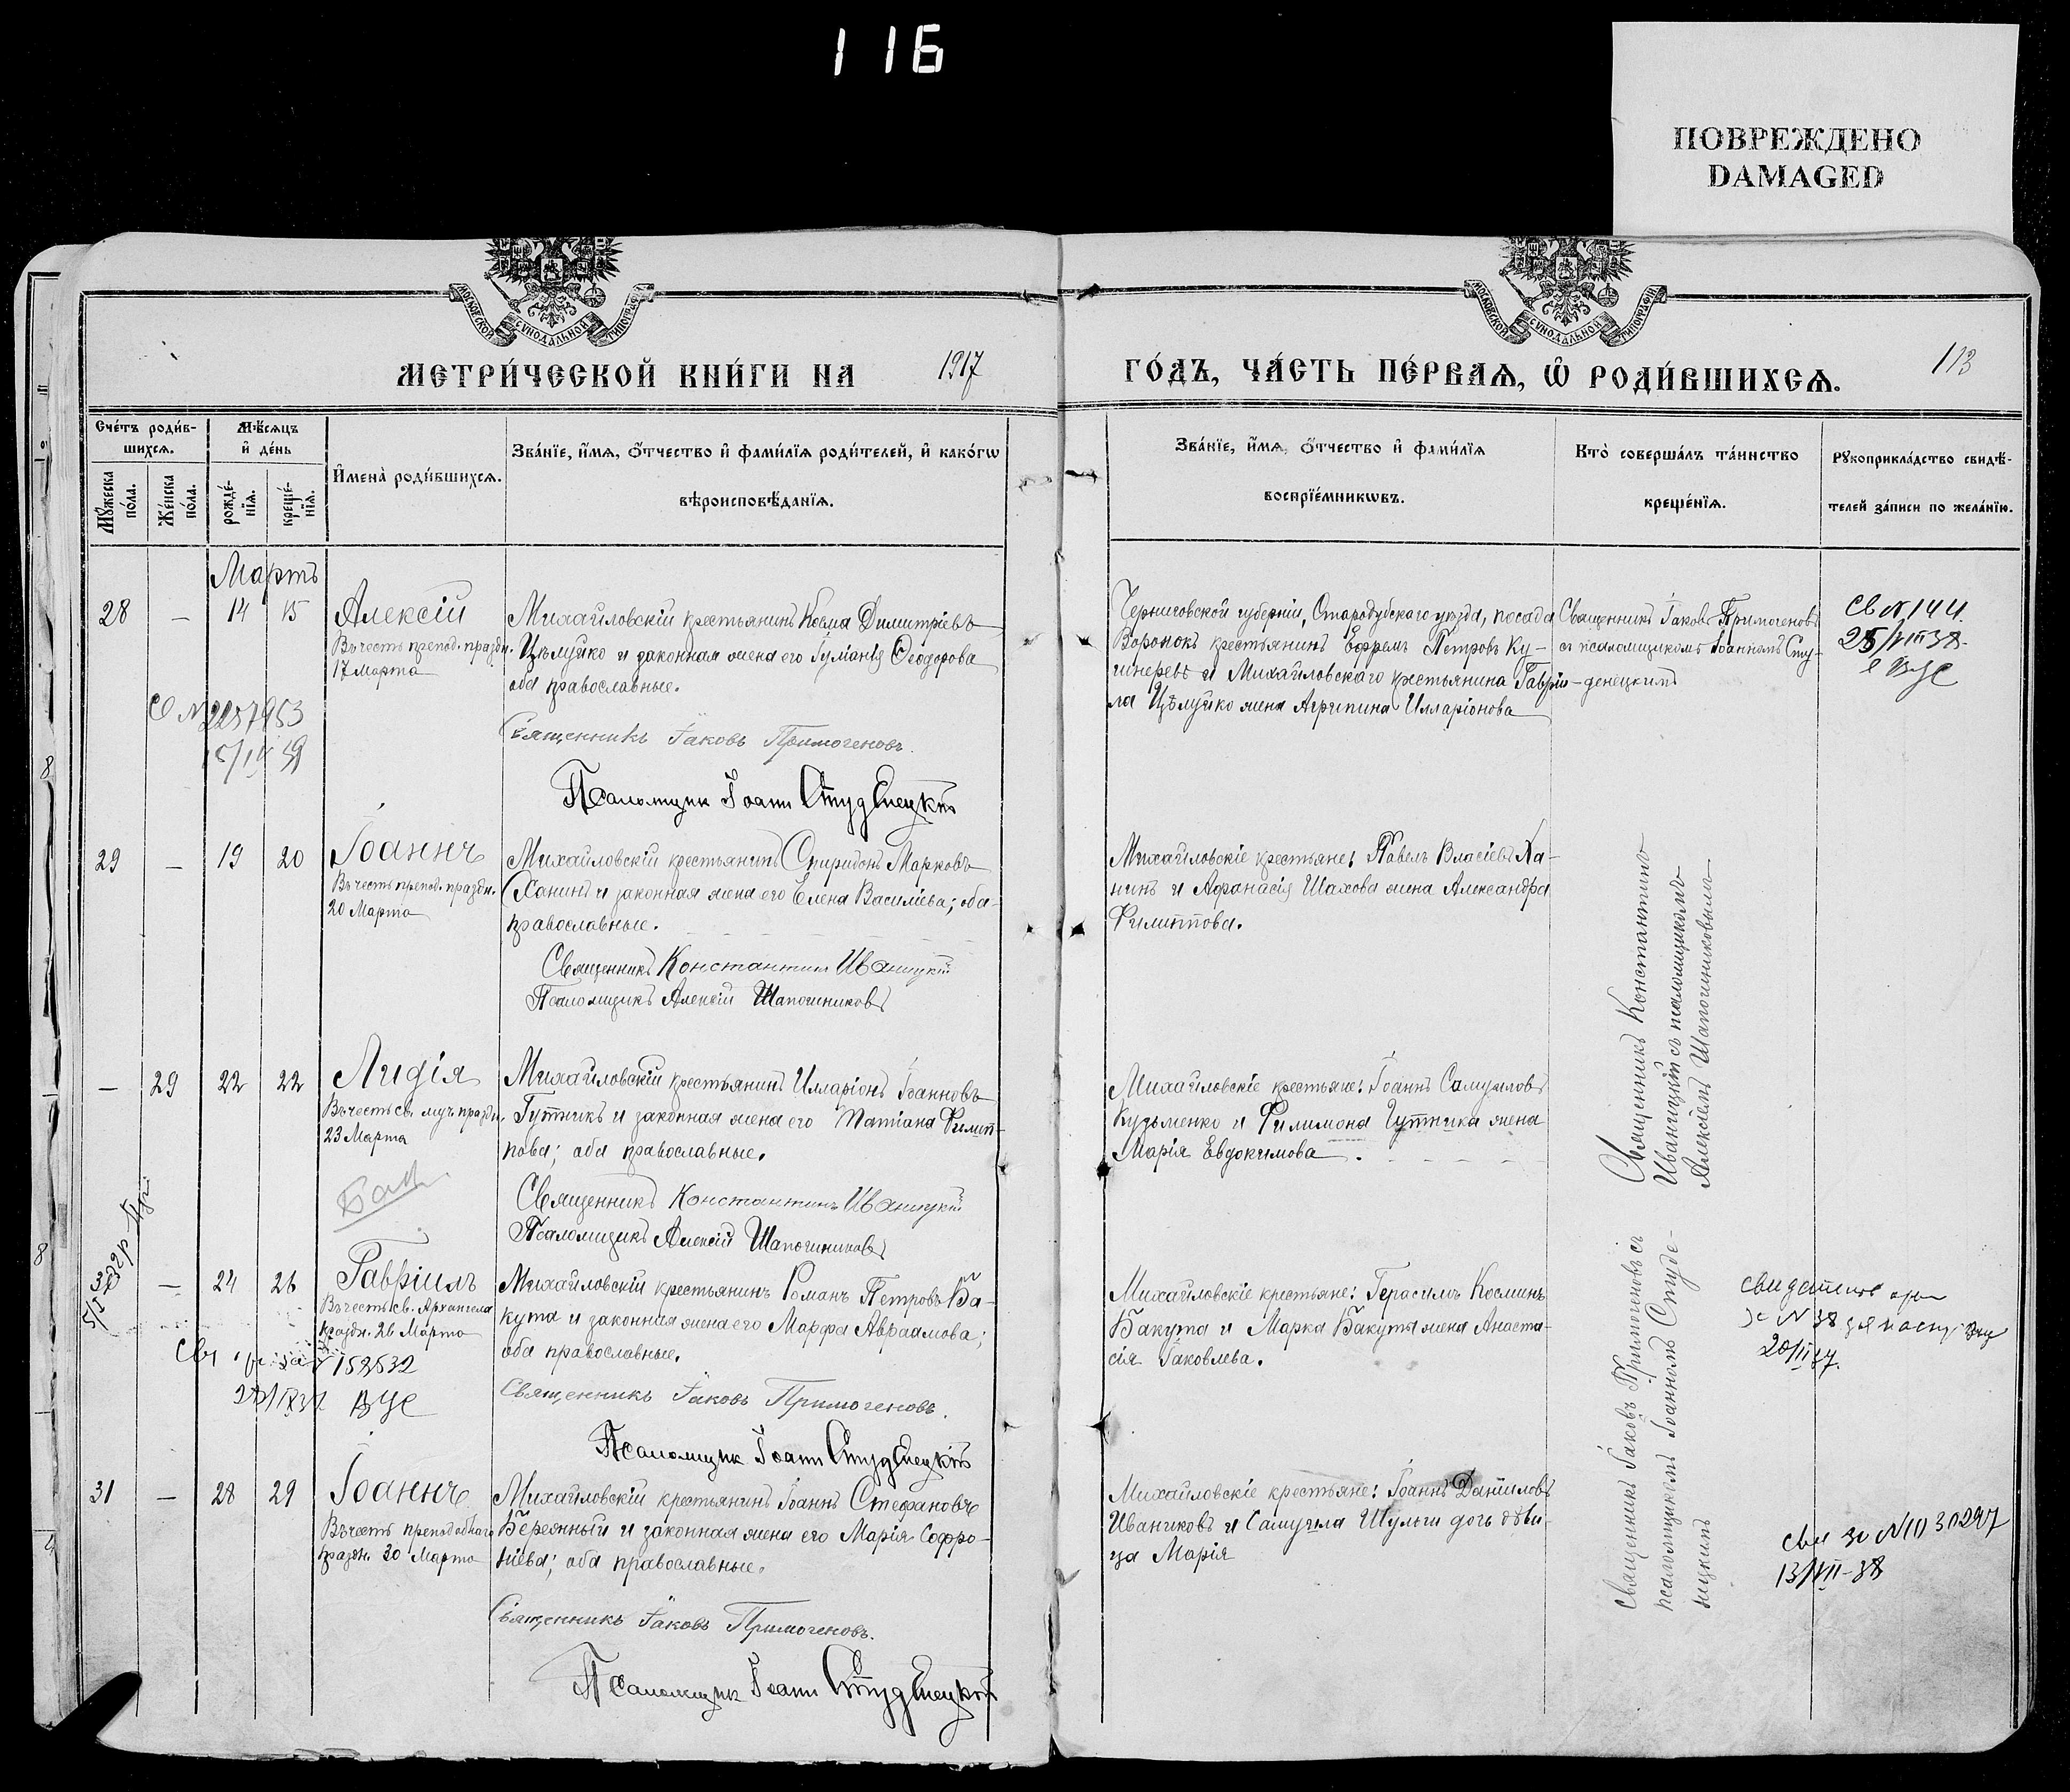 116
ПОВРЕЖДЕНО
DAMAGED
МОСКОВСКОЙ СѴНОДАЛЬНОЙ ТИПОГРАФІИ
МОСКОВСКОЙ СѴНОДАЛЬНОЙ ТИПОГРАФІИ
МЕТРИ́ЧЕСКОЙ КНИ́ГИ НА 1917
ГО́ДЪ, ЧА́СТЬ ПЕ́РВАѦ, Ѡ РОДИ́ВШИХСѦ.
113
Сче́тъ роди́в-
шихсѧ.
Мꙋжеска по́ла.
Же́нска по́ла.
Мѣ́сѧцъ
и҆ де́нь
рожде́-
нїѧ.
креще́-
нїѧ.
И҆мена̀ роди́вшихсѧ.
Зва́нїе, и҆́мѧ, ѻ҆́тчество и҆ фами́лїѧ роди́телей, и҆ како́гѡ
вѣроисповѣ́данїѧ.
Зва́нїе, и҆́мѧ, ѻ҆́тчество и҆ фами́лїѧ
воспрїе́мникѡвъ.
Кто̀ соверша́лъ та́инство
креще́нїѧ.
Рꙋкоприкла́дство свидѣ́-
телей за́писи по жела́нїю.
Мартъ
28 — 14 15
Алексій
Въ честь препод. праздн.
17 Марта
Михайловскій крестьянинъ Косма Димитріевъ
Цѣлуйко и законная жена его Іуліанія Ѳеодорова
оба православные.
Священникъ Іаковъ Примогеновъ.
Псаломщик Іоанн Студенецкій
Черниговской губерніи, Стародубскаго уѣзда, посада
Воронокъ крестьянинъ Ефремъ Петровъ Ку-
шнеревъ и Михайловскаго крестьянина Гавріи-
ла Цѣлуйко жена Агрипина Илларіонова
Священникъ Іаковъ Примогеновъ
съ псаломщикомъ Іоанномъ Сту-
денецкимъ
Св N 144
29 — 19 20
Іоаннъ
Въ честь препод. праздн.
20 Марта
Михайловскій крестьянинъ Спиридонъ Марковъ
Ханинъ и законная жена его Елена Васильева; оба
православные.
Священникъ Константин Иваницкій
Псаломщикъ Алексій Шапошниковъ
Михайловскіе крестьяне: Павелъ Власіевъ Ха-
нинъ и Афанасія Шахова жена Александра
Филиппова.
Священникъ Константинъ
Иваницкій съ псаломщикомъ
Алексіемъ Шапошниковымъ
— 29 22 22
Лидія
Въ честь св. муч. праздн.
23 Марта
Михайловскій крестьянинъ Илларіонъ Іоанновъ
Гутникъ и законная жена его Татіана Филип-
пова; оба православные.
Священникъ Константинъ Иваницкій
Псаломщикъ Алексій Шапошниковъ
Михайловскіе крестьяне: Іоаннъ Самуиловъ
Кузьменко и Филимона Гутника жена
Марія Евдокимова.
— 24 26
Гавріилъ
Въ честь св. Архангела
праздн. 26 Марта
158532
ВУС
Михайловскій крестьянинъ Романъ Петровъ Ба-
кута и законная жена его Марфа Авраамова;
оба православные.
Священникъ Іаковъ Примогеновъ.
Псаломщик Іоанн Студенецкій
Михайловскіе крестьяне: Герасимъ Косминъ
Бакута и Марка Бакуты жена Анаста-
сія Іаковлева.
Священникъ Іаковъ Примогеновъ съ
псаломщикомъ Іоанномъ Студе-
нецкимъ
31 — 28 29
Іоаннъ
Въ честь преподобнаго
праздн. 30 Марта
Михайловскій крестьянинъ Іоаннъ Стефановъ
Березнный и законная жена его Марія Софро-
ніева; оба православные.
Священникъ Іаковъ Примогеновъ.
Псаломщик Іоанн Студенецкій
Михайловскіе крестьяне: Іоаннъ Даніиловъ
Иванчиковъ и Самуила Шульги дочь дѣви-
ца Марія
13/VII-38